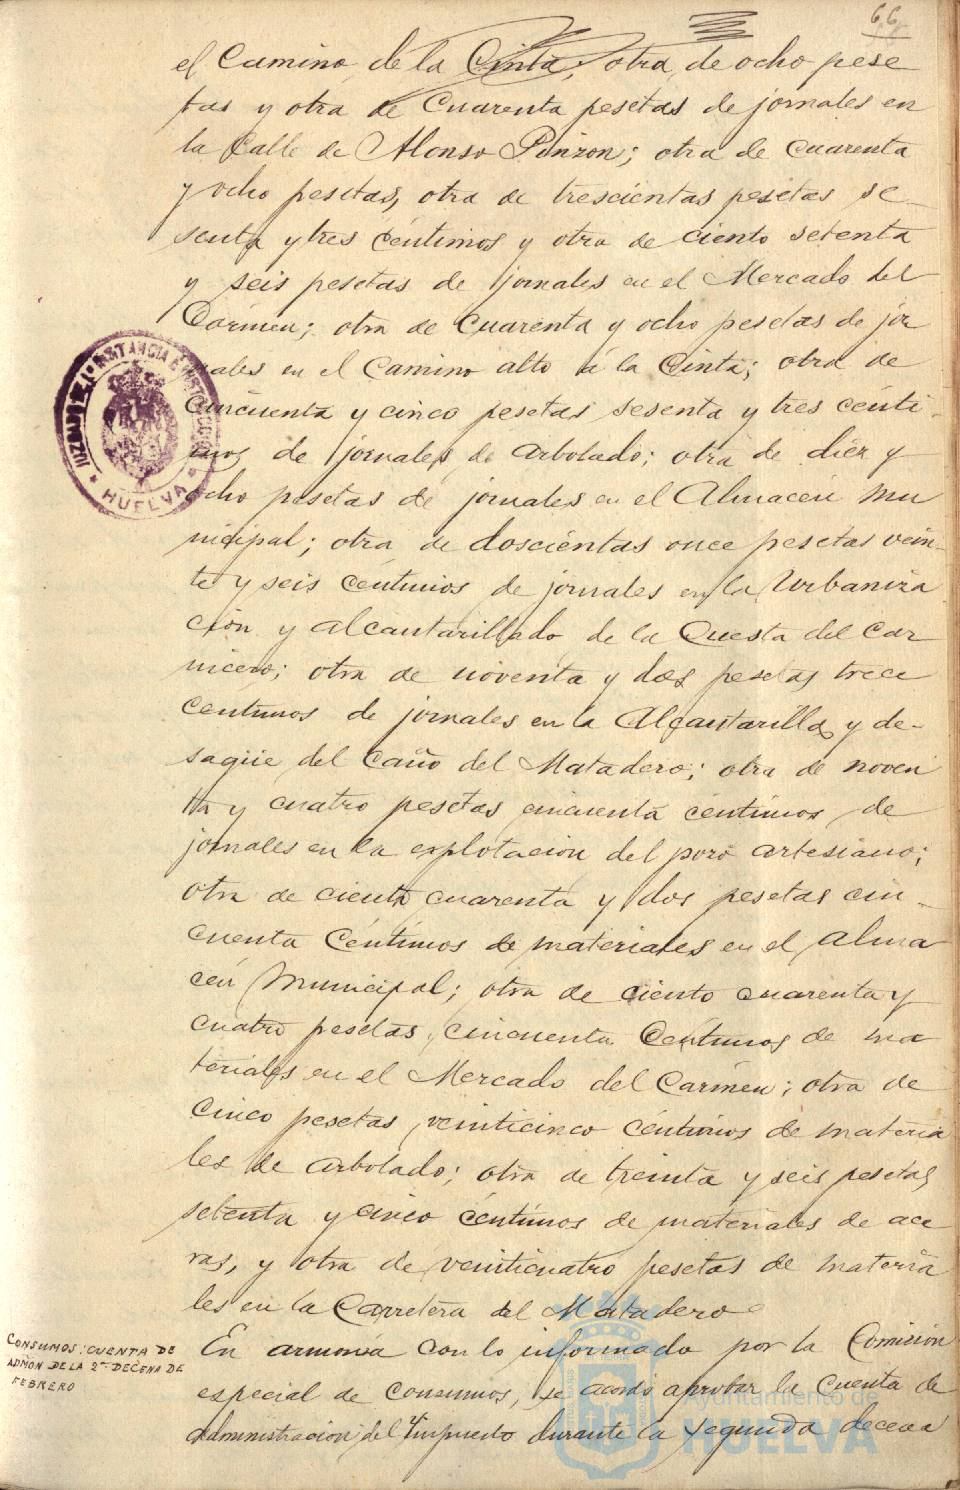 66
el Camino de la Cinta; otra de ocho pese
tas y otra de Cuarenta pesetas de jornales en
la Calle de Alonso Pinzon; otra de cuarenta
y ocho pesetas, otra de trescientas pesetas se-
senta y tres céntimos y otra de ciento setenta
y seis pesetas de jornales en el Mercado del
Cármen; otra de Cuarenta y ocho pesetas de jor
nales en el Camino alto á la Cinta; otra de
Cincuenta y cinco pesetas sesenta y tres cénti-
mos de jornales de arbolado; otra de diez y
ocho pesetas de jornales en el Almacén mu
nicipal; otra de doscientas once pesetas vein-
te y seis céntimos de jornales en la Urbaniza
ción y alcantarillado de la Cuesta del Car
nicero; otra de noventa y dos pesetas trece
centimos de jornales en la Alcantarilla y de-
sagüe del Caño del Matadero; otra de noven
ta y cuatro pesetas cincuenta céntimos de
jornales en la explotación del pozo artesiano;
otra de ciento cuarenta y dos pesetas cin-
cuenta Céntimos de materiales en el alma
cén Municipal; otra de ciento cuarenta y
cuatro pesetas, cincuenta Céntimos de ma
teriales en el Mercado del Carmen; otra de
Cinco pesetas veinticinco céntimos de materia
les de arbolado; otra de treinta y seis pesetas
setenta y cinco céntimos de materiales de ace
ras, y otra de veinticuatro pesetas de materia
les en la Carretera del Matadero
En armonía con lo informado por la Comisión
especial de Consumos, se acordó aprobar la Cuenta de
administración del impuesto durante la segunda decena
CONSUMOS: CUENTA DE
ADMÓN DE LA 2ª DECENA DE
FEBRERO
JUZGADO DE 1ª INSTANCIA É INSTRUCCION
* HUELVA *
Ayuntamiento de
HUELVA